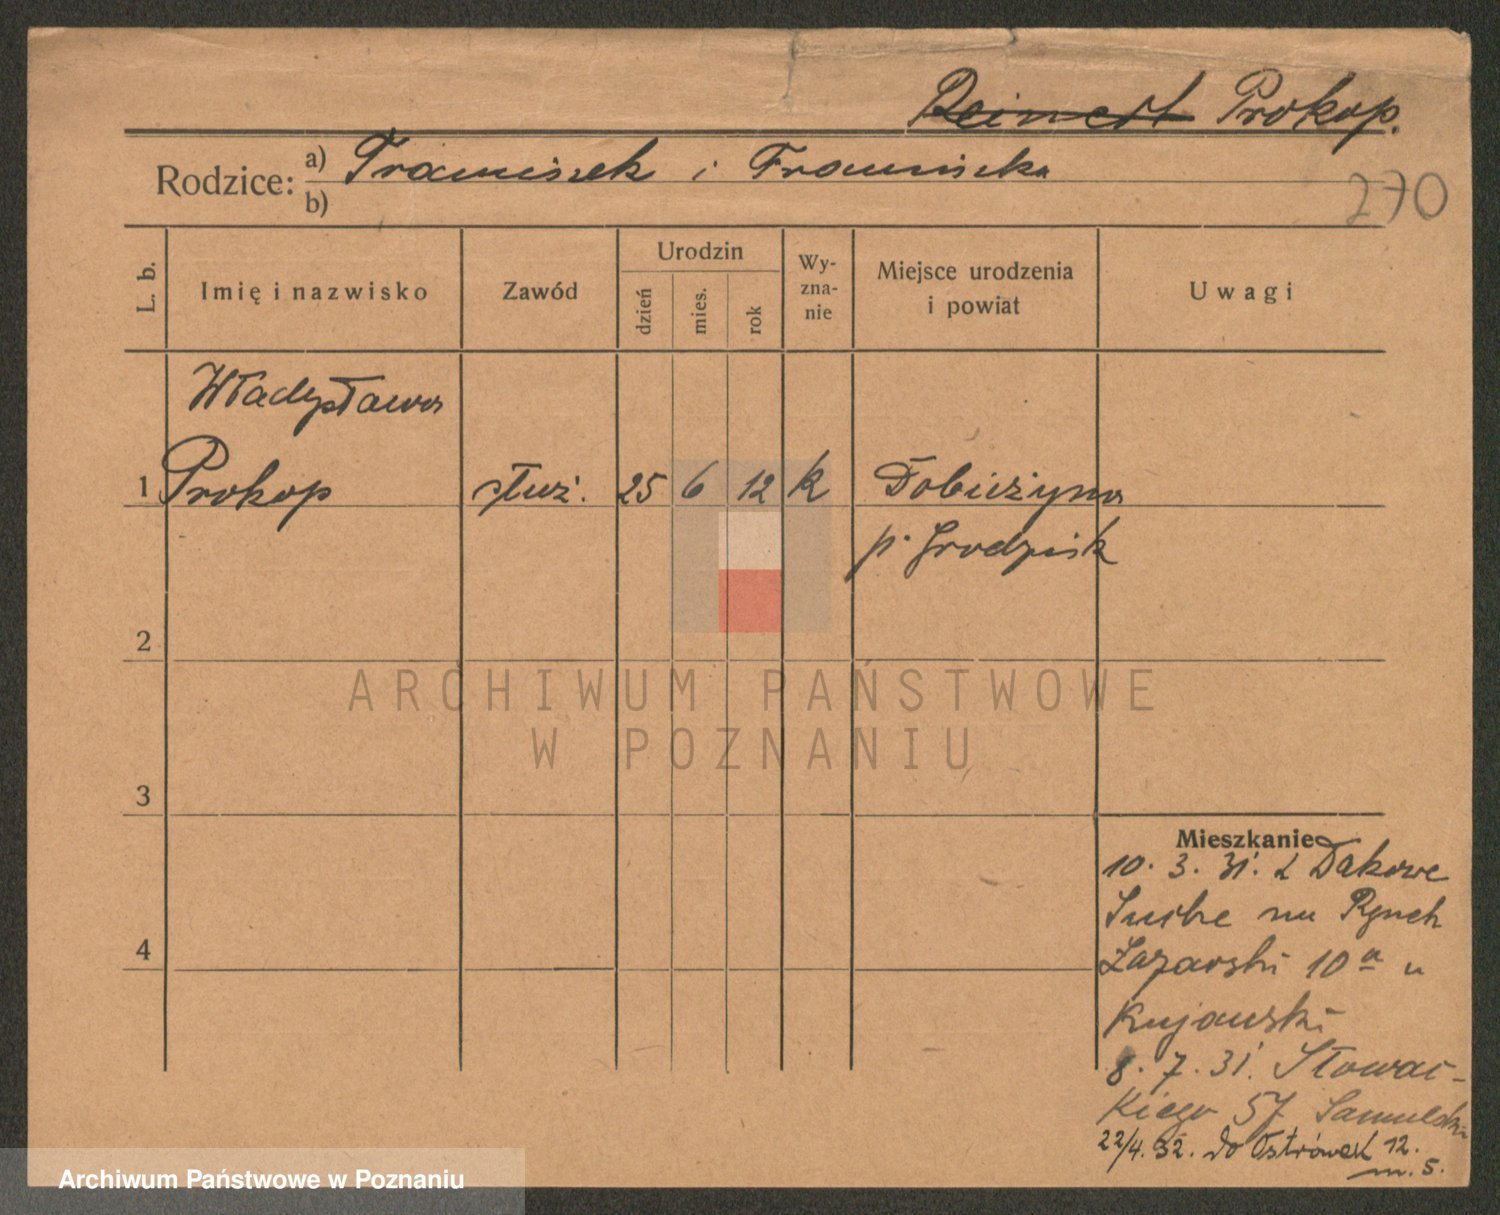 Reinert Prokop.
Rodzice: a) Franciszek i Franciszka
b)
270
L. b.
Imię i nazwisko
Zawód
Urodzin
dzień
mies.
rok
Wy-
zna-
nie
Miejsce urodzenia
i powiat
Uwagi
Władysława
1 Prokop służ. 25 6 12 k Dobieżyna
p. Grodzisk
2
3
4
Mieszkanie
10. 3. 31. z Dakowe
Suche na Rynek
Łazarski 10a u
Kujawski
8. 7. 31. Słowac-
kiego 57 Samulski
22/4. 32. do Ostrówek 12.
m. 5.
ARCHIWUM PAŃSTWOWE
W POZNANIU
Archiwum Państwowe w Poznaniu